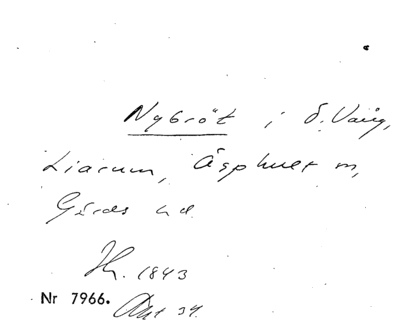 Nybröt i Ö. Vång,
Liarum, Äsphult m,
Gärds hd
Jh. 1843
Nr 7966. Akt 34.